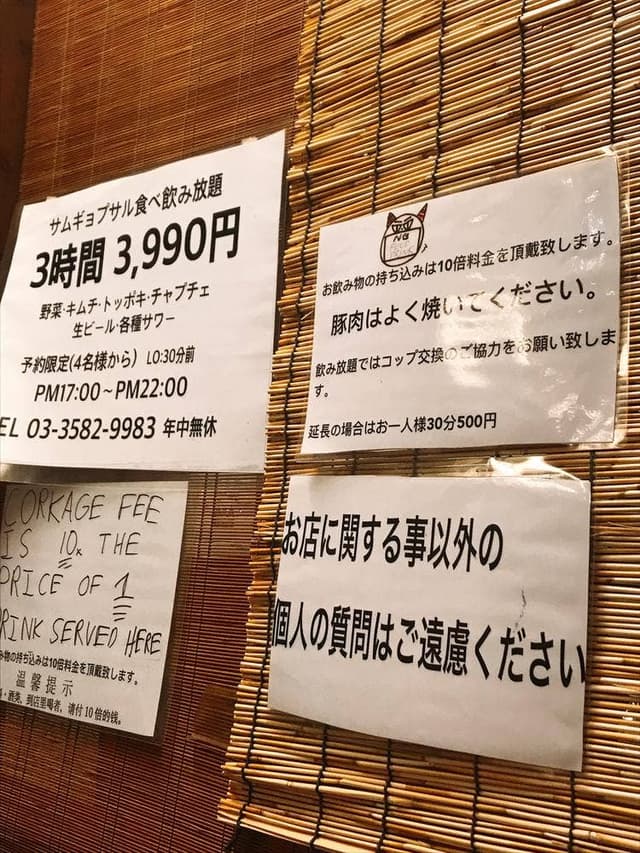 サムギョプサル食べ飲み放題
3時間 3,990円
野菜・キムチ・トッポキ・チャプチェ
生ビール・各種サワー
予約限定(4名様から) LO:30分前
PM17:00~PM22:00
EL 03-3582-9983 年中無休
お飲み物の持ち込みは10倍料金を頂戴致します。
豚肉はよく焼いてください。
飲み放題ではコップ交換のご協力をお願い致しま
す。
延長の場合はお一人様30分500円
CORKAGE FEE
IS 10x THE
PRICE OF 1
RINK SERVED HERE
み物の持ち込みは10倍料金を頂戴致します。
温馨提示
・酒类，到店里喝者，请付10倍的钱。
お店に関する事以外の
個人の質問はご遠慮ください